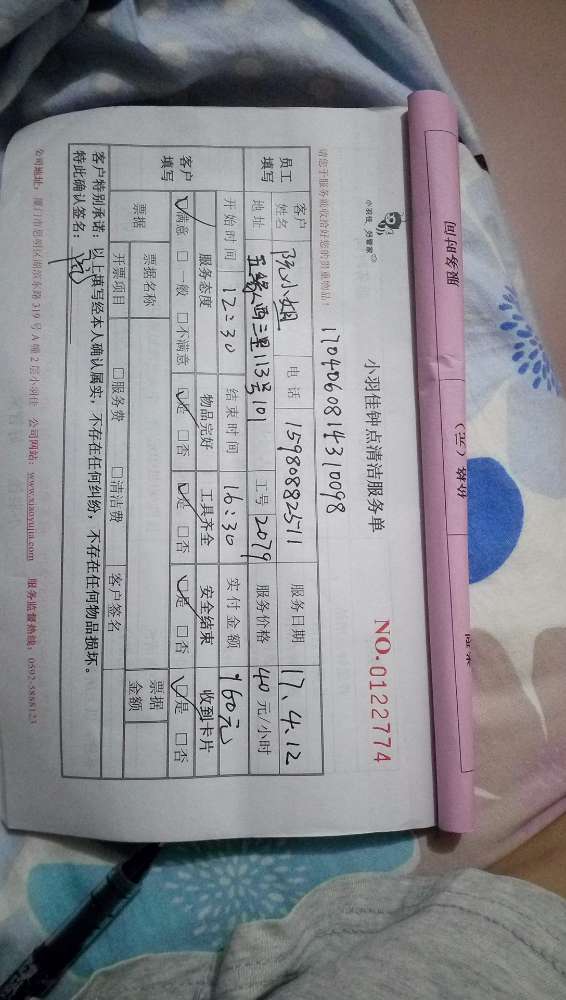 服务时间
小羽佳 好管家
小羽佳钟点清洁服务单
NO.0122774
17040608143110098
请您于服务前收拾好您的贵重物品!
员工填写 客户姓名 阮小姐 电话 15980882511 服务日期 17.4.12
地址 五缘人西三里113号101 工号 2079 服务价格 40元/小时
开始时间 12:30 结束时间 16:30 实付金额 160元
客户填写 服务态度 物品完好 工具齐全 安全结束 收到卡片
☑满意 □一般 □不满意 ☑是 □否 ☑是 □否 ☑是 □否 ☑是 □否
票据 票据名称 票据金额
开票项目 □服务费 □清洁费 客户签名
客户特别承诺:以上填写经本人确认属实,不存在任何纠纷,不存在任何物品损坏。
特此确认签名:阮
公司地址:厦门市思明区湖滨东路319号A幢2层小羽佳 公司网站:www.xiaoyujia.com 服务监督热线:0592-5888123